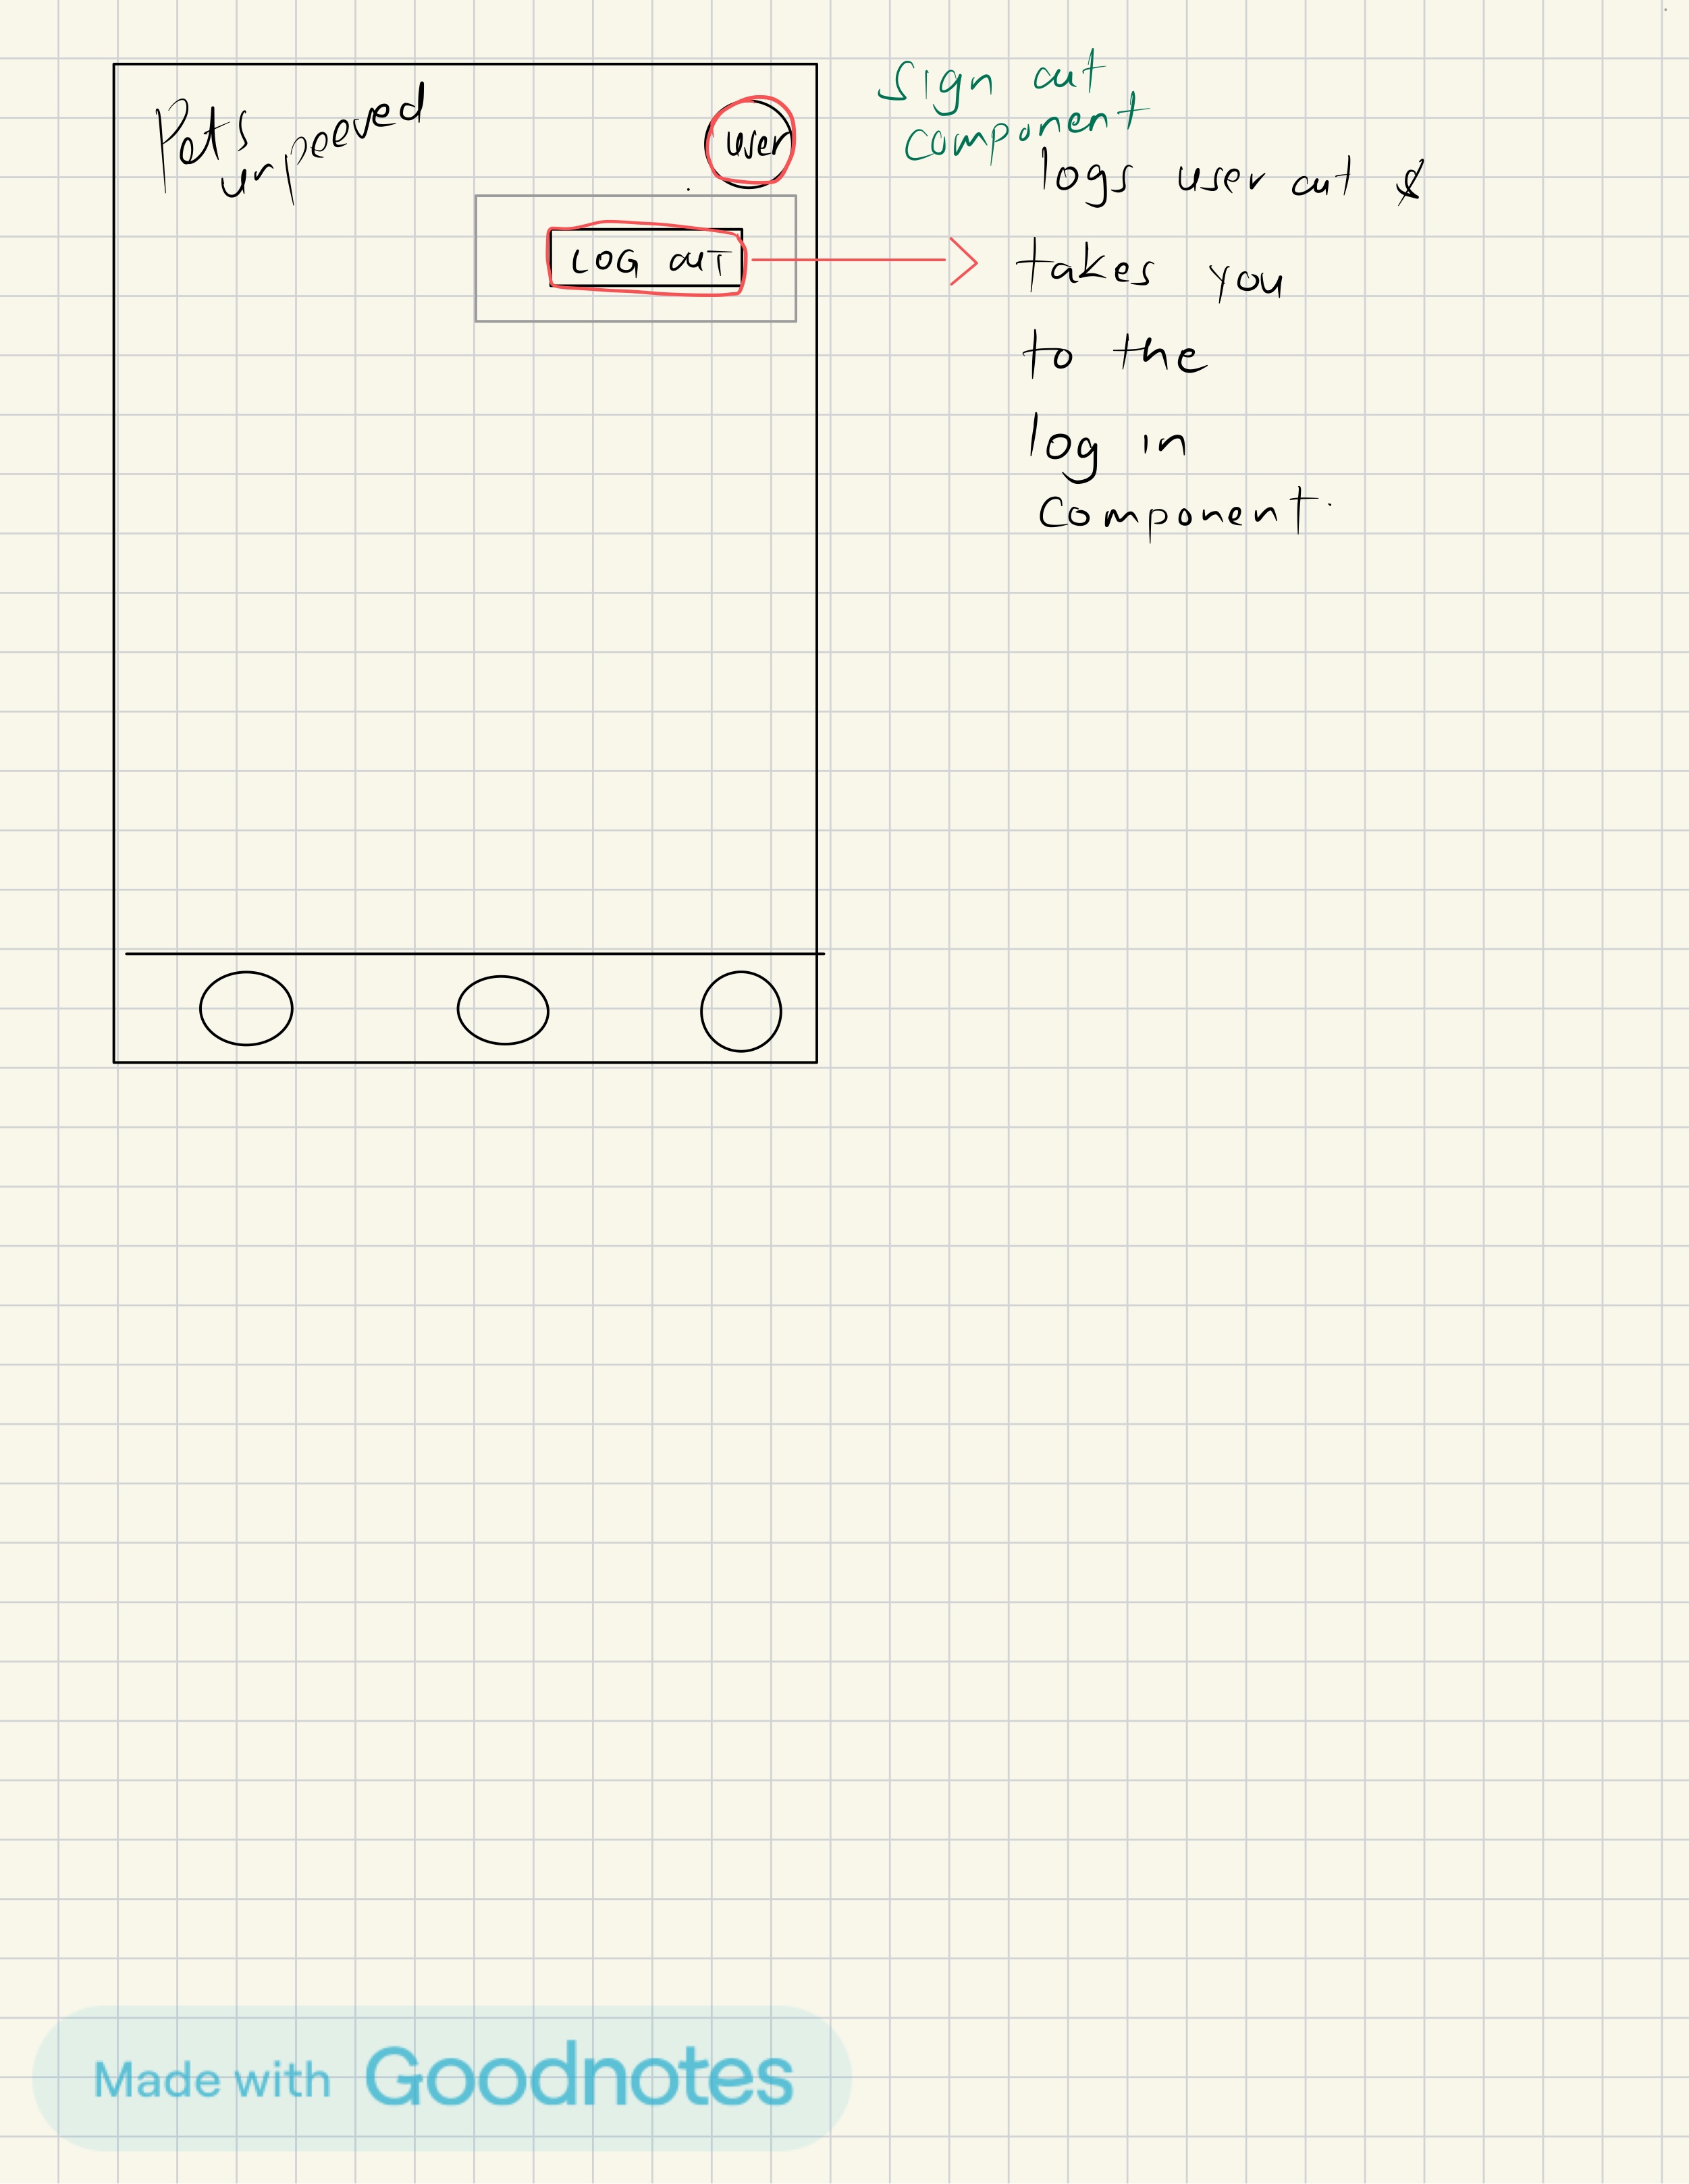 Pets
unpeeved
user
LOG OUT
Sign out
component
logs user out &
takes you
to the
log in
component.
Made with Goodnotes